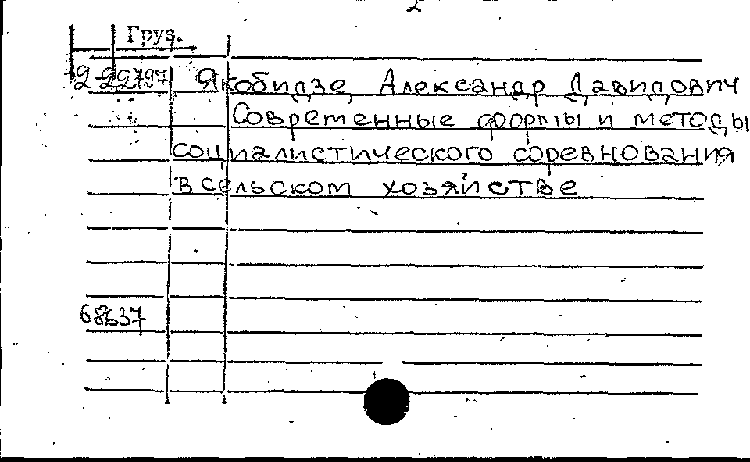 2
Груз.
Якобидзе, Александр Давидович
Современные формы и методы
социалистического соревнования
в сельском хозяйстве
68637